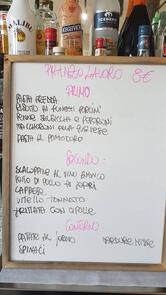 PRANZO LAVORO 8€
PRIMO
PASTA FREDDA
RISOTTO AI FUNGHI PORCINI
PENNE SALSICCIA E PEPERONI
MACCHERONI ALLA BARESE
PASTA AL POMODORO
SECONDO:
SCALOPPINE AL VINO BIANCO
POLLO AI
CAPPERI
VITELLO TONNATO
FRITTATA CON CIPOLLE
CONTORNO:
PATATE AL FORNO
VERDURE MISTE
SPINACI
MALIBU